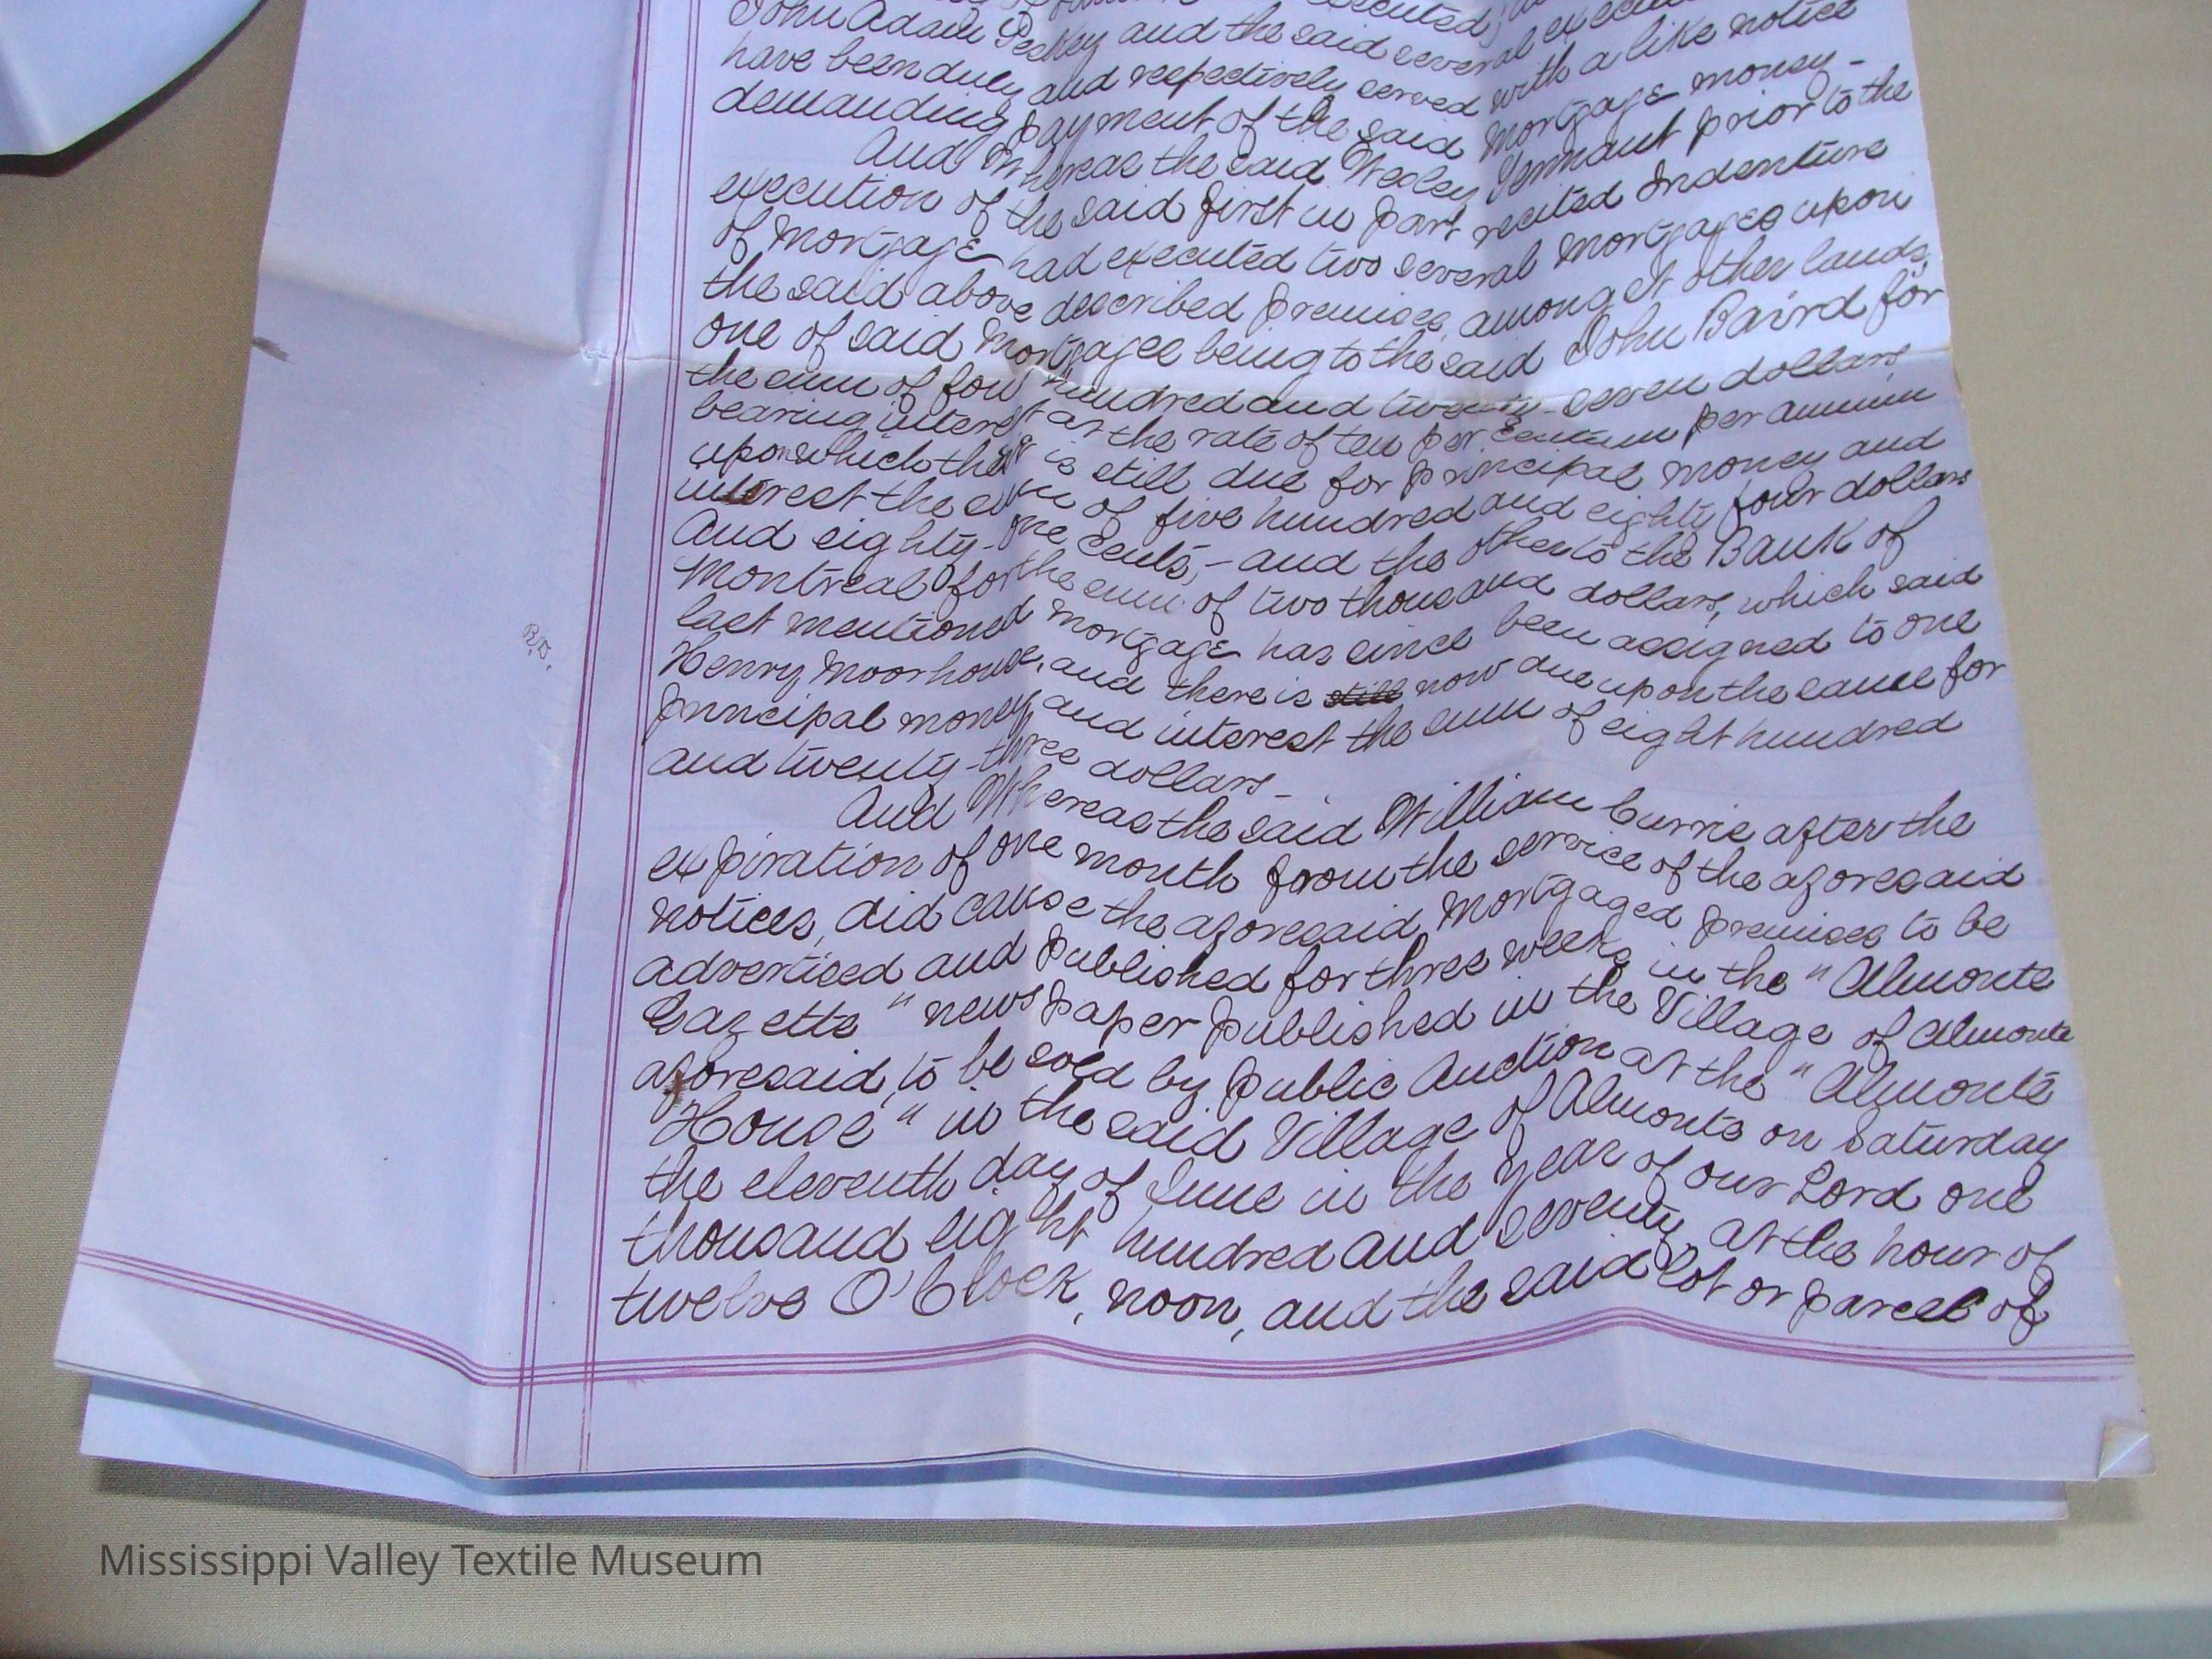 executed,
John Adam Peckey and the said several
have been duly and respectively served with a like notice
demanding payment of the said mortgage money -
And Whereas the said Wesley Tennant prior to the
execution of the said first in part recited Indenture
of mortgage had executed two several mortgages upon
the said above described premises, amongst other lands,
one of said mortgages being to the said John Baird for
the sum of four hundred and twenty-seven dollars
bearing interest at the rate of ten per centum per annum
upon which there is still due for principal money and
interest the sum of five hundred and eighty four dollars
And eighty-one cents, - and the other to the Bank of
Montreal for the sum of two thousand dollars, which said
last mentioned mortgage has since been assigned to one
Henry Moorhouse, and there is still now due upon the same for
principal money and interest the sum of eight hundred
and twenty-three dollars -
And Whereas the said William Currie after the
expiration of one month from the service of the aforesaid
notices, did cause the aforesaid mortgaged premises to be
advertised and published for three weeks in the "Almonte
Gazette" newspaper published in the Village of Almonte
aforesaid, to be sold by public Auction at the "Almonte
House" in the said Village of Almonte on Saturday
the eleventh day of June in the year of our Lord one
thousand eight hundred and seventy, at the hour of
twelve O'Clock, noon, and the said lot or parcel of
Mississippi Valley Textile Museum